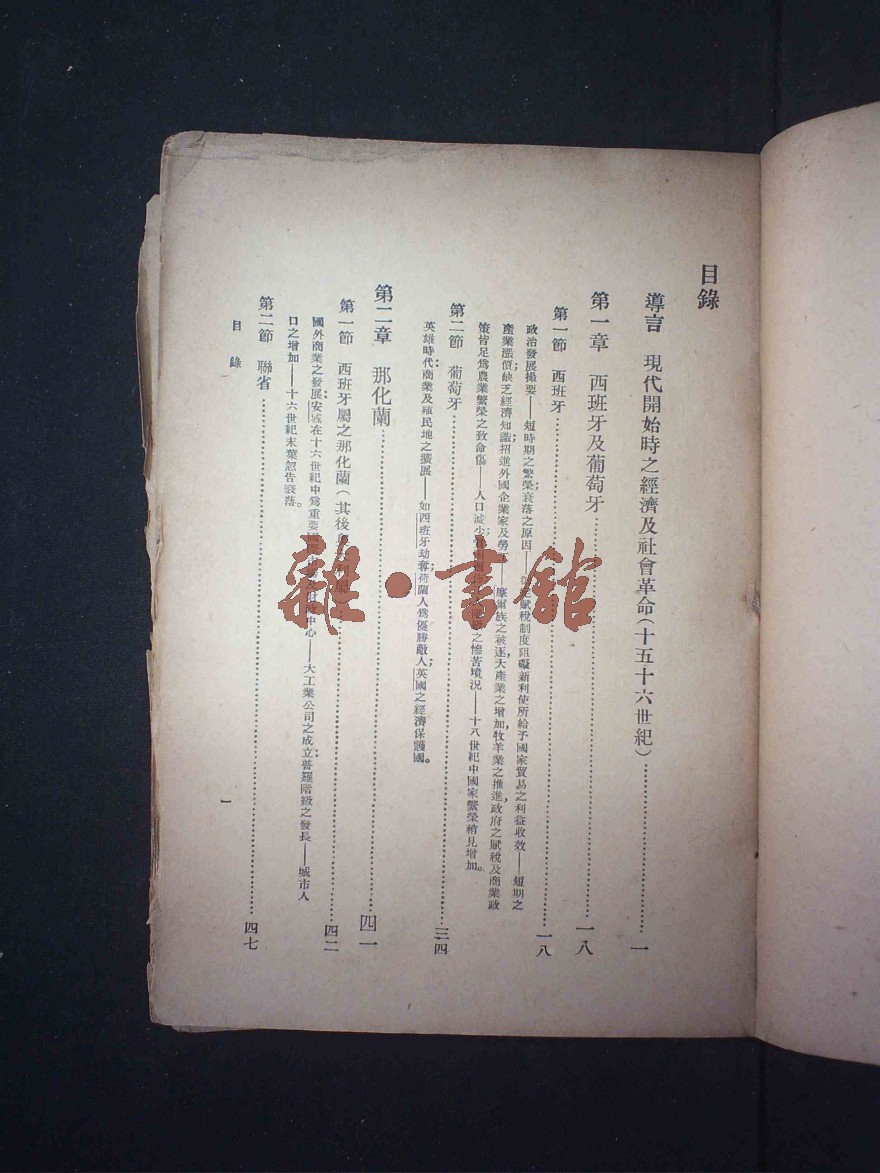 目錄
導言 現代開始時之經濟及社會革命(十五十六世紀)……一
第一章 西班牙及葡萄牙……一八
第一節 西班牙……一八
政治發展撮要——短時期之繁榮;衰落之原因——賦稅制度阻礙新利使所給予國家貿易之利益收效——短期之
產業漲價;缺乏經濟知識;招進外國企業家及勞——摩爾族之被逐,大產業之增加,牧羊業之推進,政府之賦稅及商業政
策皆足爲農業繁榮之致命傷——人口減少;之慘苦境況——十八世紀中國家繁榮稍見增加。
第二節 葡萄牙……三四
英雄時代:商業及殖民地之擴展——如西班牙劫奪;荷蘭人爲優勝敵人;英國之經濟保護國。
第二章 那化蘭……四一
第一節 西班牙屬之那化蘭(其後……四二
國外商業之發展:安戚在十六世紀中爲重要中心——大工業公司之成立:普羅階級之發長——城市人
口之增加——十六世紀末葉忽告衰落。
第二節 聯省……四七
目錄
一
雜·書館